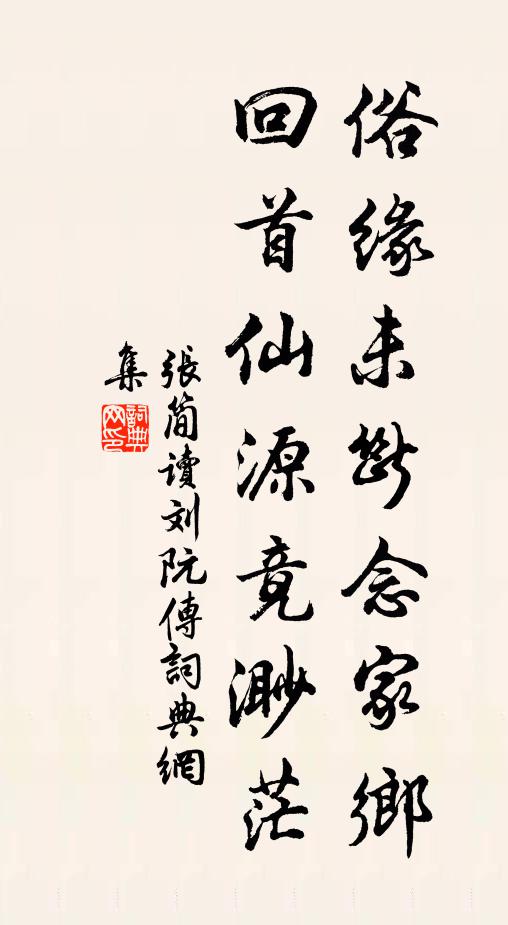 俗缘未断念家鄉
回首仙源竟渺茫
張簡讀刘阮傳詞典網
集
詞典
网印